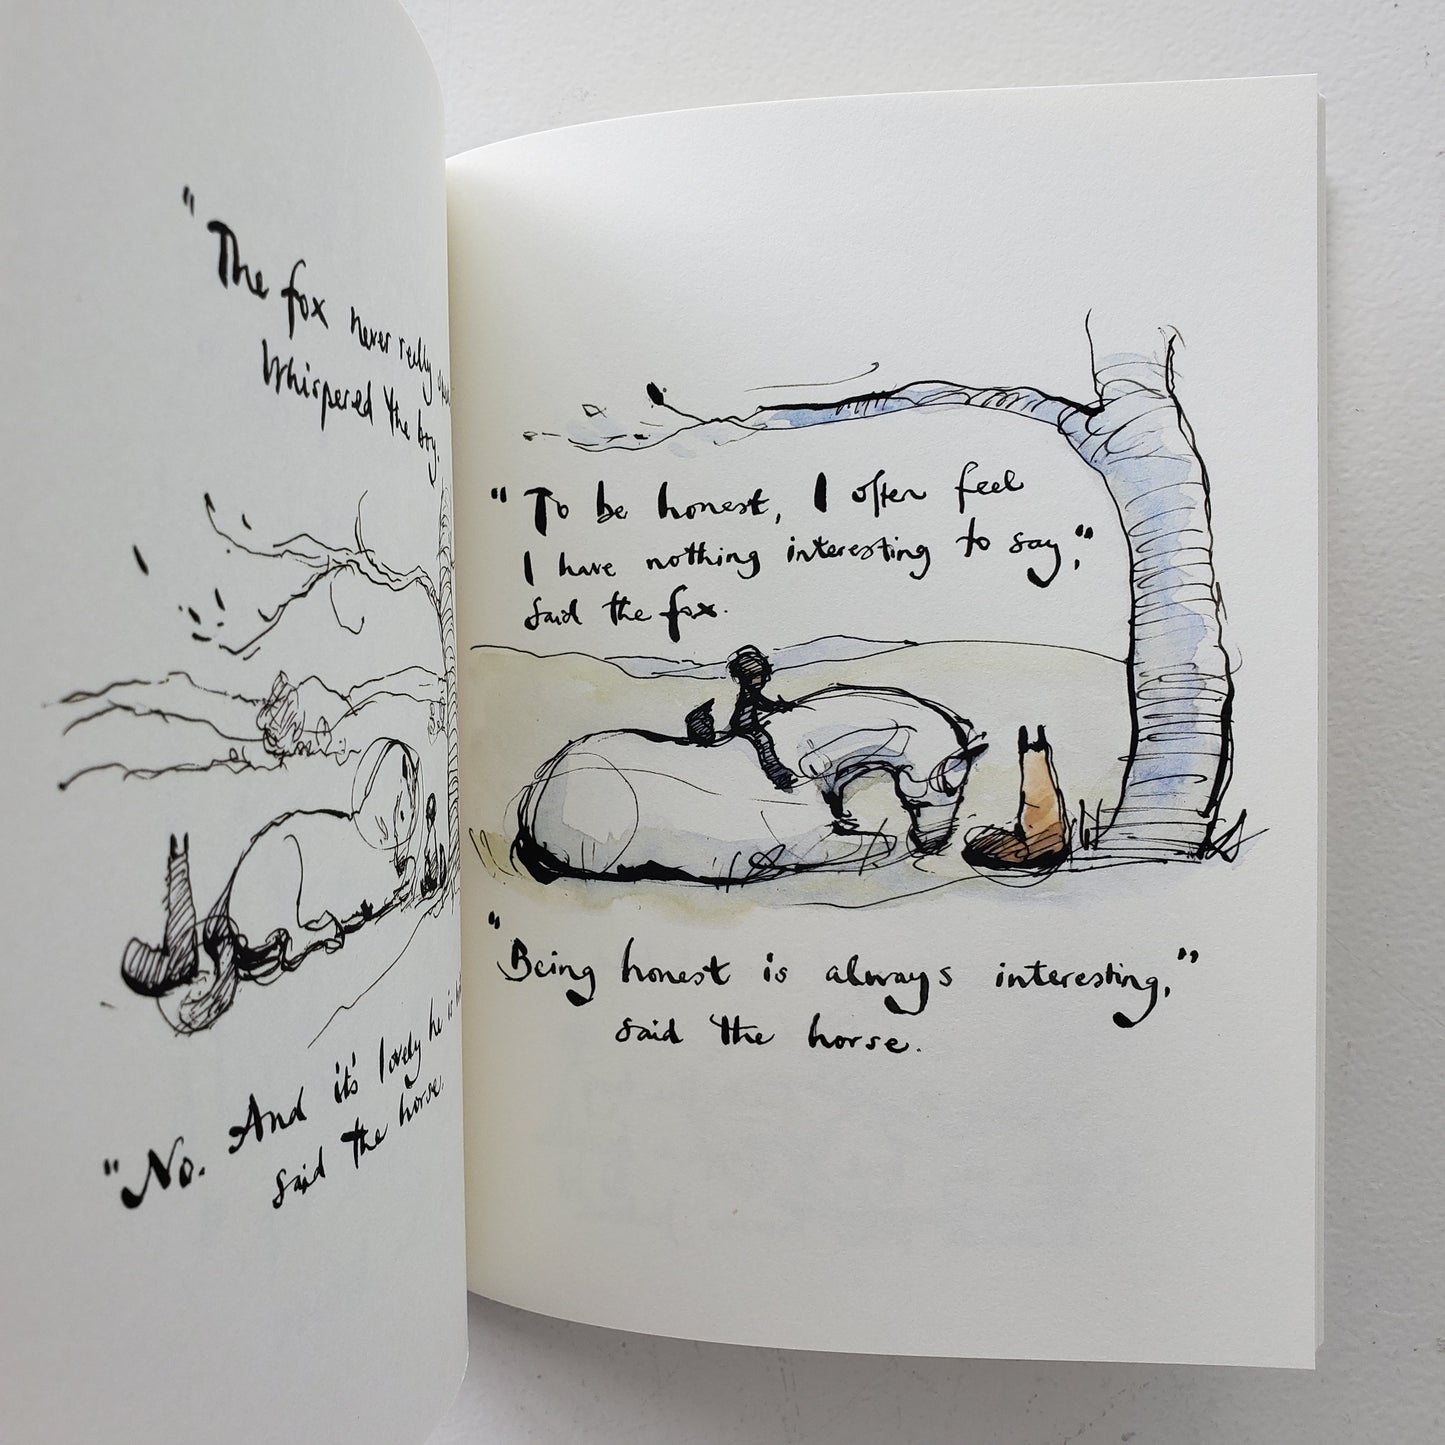 "The fox never really
Whispered the boy.
"No. And it's lovely he is
said the horse.
"To be honest, I often feel
I have nothing interesting to say,"
said the fox.
"Being honest is always interesting,"
said the horse.